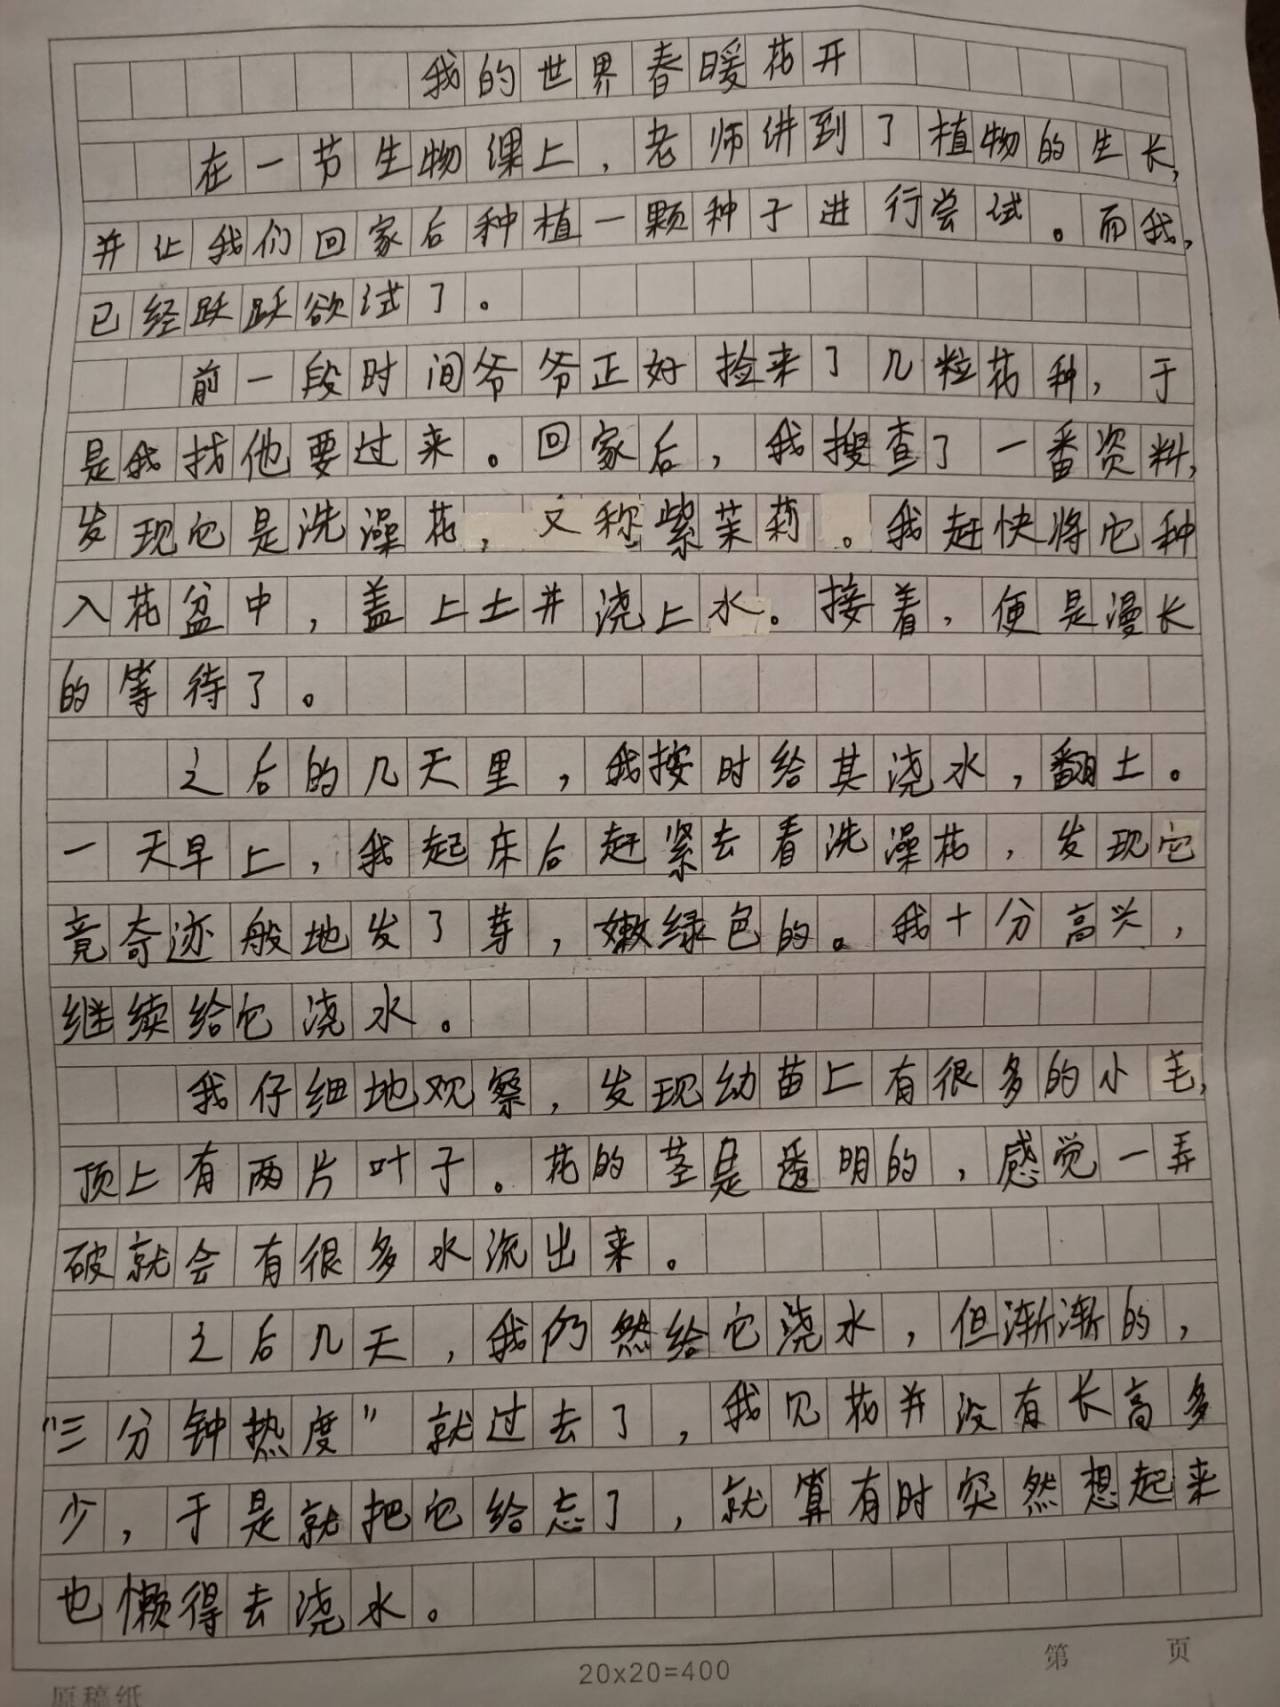 我的世界春暖花开
在一节生物课上，老师讲到了植物的生长，
并让我们回家后种植一颗种子进行尝试。而我，
已经跃跃欲试了。
前一段时间爷爷正好捡来了几粒花种，于
是我找他要过来。回家后，我搜查了一番资料，
发现它是洗澡花，又称紫茉莉。我赶快将它种
入花盆中，盖上土并浇上水。接着，便是漫长
的等待了。
之后的几天里，我按时给其浇水，翻土。
一天早上，我起床后赶紧去看洗澡花，发现它
竟奇迹般地发了芽，嫩绿色的。我十分高兴，
继续给它浇水。
我仔细地观察，发现幼苗上有很多的小毛，
顶上有两片叶子。花的茎是透明的，感觉一弄
破就会有很多水流出来。
之后几天，我仍然给它浇水，但渐渐的，
“三分钟热度”就过去了，我见花并没有长高多
少，于是就把它给忘了，就算有时突然想起来
也懒得去浇水。
20×20=400
第 页
原稿纸